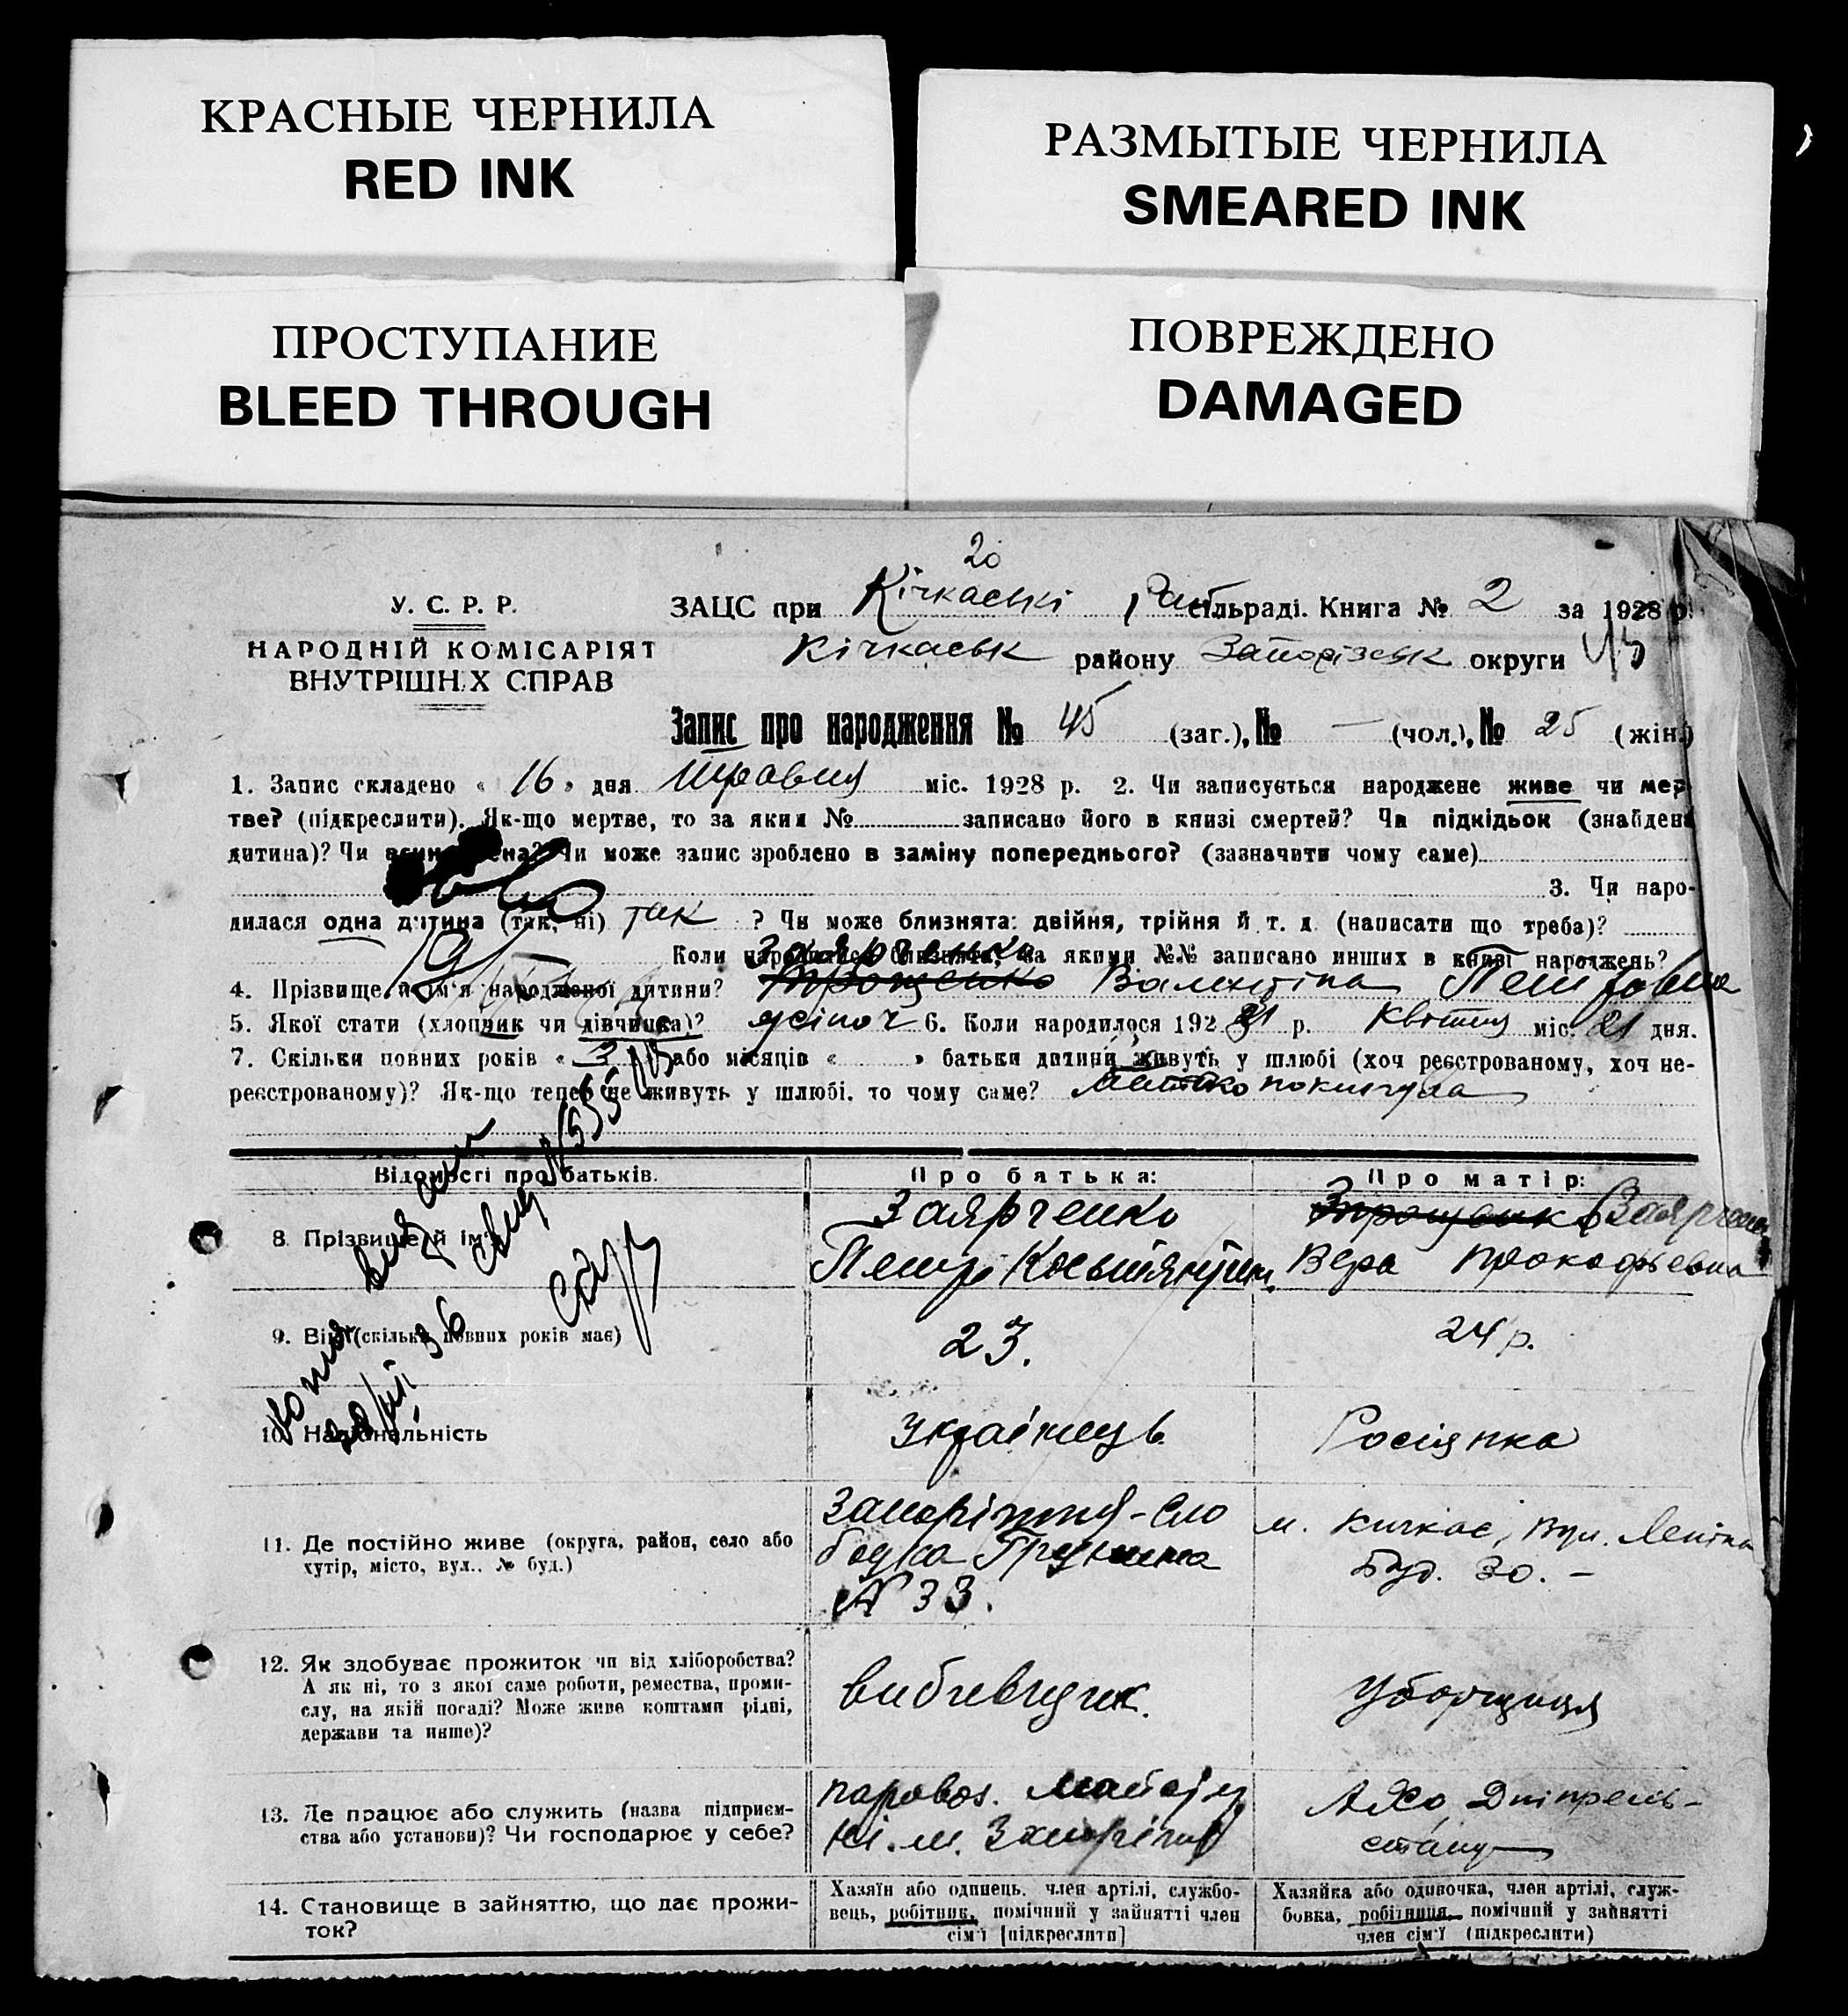 КРАСНЫЕ ЧЕРНИЛА
RED INK
РАЗМЫТЫЕ ЧЕРНИЛА
SMEARED INK
ПРОСТУПАНИЕ
BLEED THROUGH
ПОВРЕЖДЕНО
DAMAGED
20
У. С. Р. Р.
НАРОДНІЙ КОМІСАРІЯТ
ВНУТРІШНІХ СПРАВ
ЗАЦС при Кічкаські сільраді. Книга № 2 за 1928 р.
Кічкаськ району Запорізськ округи
Запис про народження № 45 (заг.), № — (чол.), № 25 (жін.)
1. Запис складено « 16 » дня травня міс. 1928 р. 2. Чи записується народжене живе чи мер-
тве? (підкреслити). Як-що мертве, то за яким № записано його в книзі смертей? Чи підкідьок (знайдена
дитина)? Чи може запис зроблено в заміну попереднього? (зазначити чому саме)
3. Чи наро-
дилася одна дитина (так, ні) так ? Чи може близнята: двійня, трійня й т. д. (написати що треба)?
Коли народилися близнята, за якими №№ записано инших в книзі народжень?
Заярченко
4. Прізвище й ім'я народженої дитини? Трощенко Валентіна Петровна
5. Якої статі (хлопчик чи дівчинка)? жіноч 6. Коли народилося 192 р. Квітня міс. 21 дня.
7. Скільки повних років « 3 » або місяців « » батьки дитини живуть у шлюбі (хоч реєстрованому, хоч не-
реєстрованому)? Як-що тепер не живуть у шлюбі, то чому саме? покинула
Відомості про батьків.
Про батька:
Про матір:
8. Прізвище й ім'я
Заярченко
Петр
Заярченко
Вера Прокофьевна
9. Вік (скільки повних років має)
23.
24 р.
10. Національність
Українець
Росіянка
11. Де постійно живе (округа, район, село або
хутір, місто, вул., № буд.)
Запоріжжя-Сло
бодка
№ 33.
м. Кичкас, вул. Леніна
Буд. 30. –
12. Як здобуває прожиток чи від хліборобства?
А як ні, то з якої саме роботи, ремества, проми-
слу, на якій посаді? Може живе коштами рідні,
держави та инше)?
Уборщиця
13. Де працює або служить (назва підприєм-
ства або установи)? Чи господарює у себе?
паровоз.
м. Запоріжжя
АХО Дніпрель-
стану
14. Становище в зайняттю, що дає прожи-
ток?
Хазяїн або одинець, член артілі, службо-
вець, робітник, помічний у зайнятті член
сім'ї [підкреслити]
Хазяйка або одиночка, член артілі, служ-
бовка, робітниця, помічний у зайнятті
член сім'ї (підкреслити)